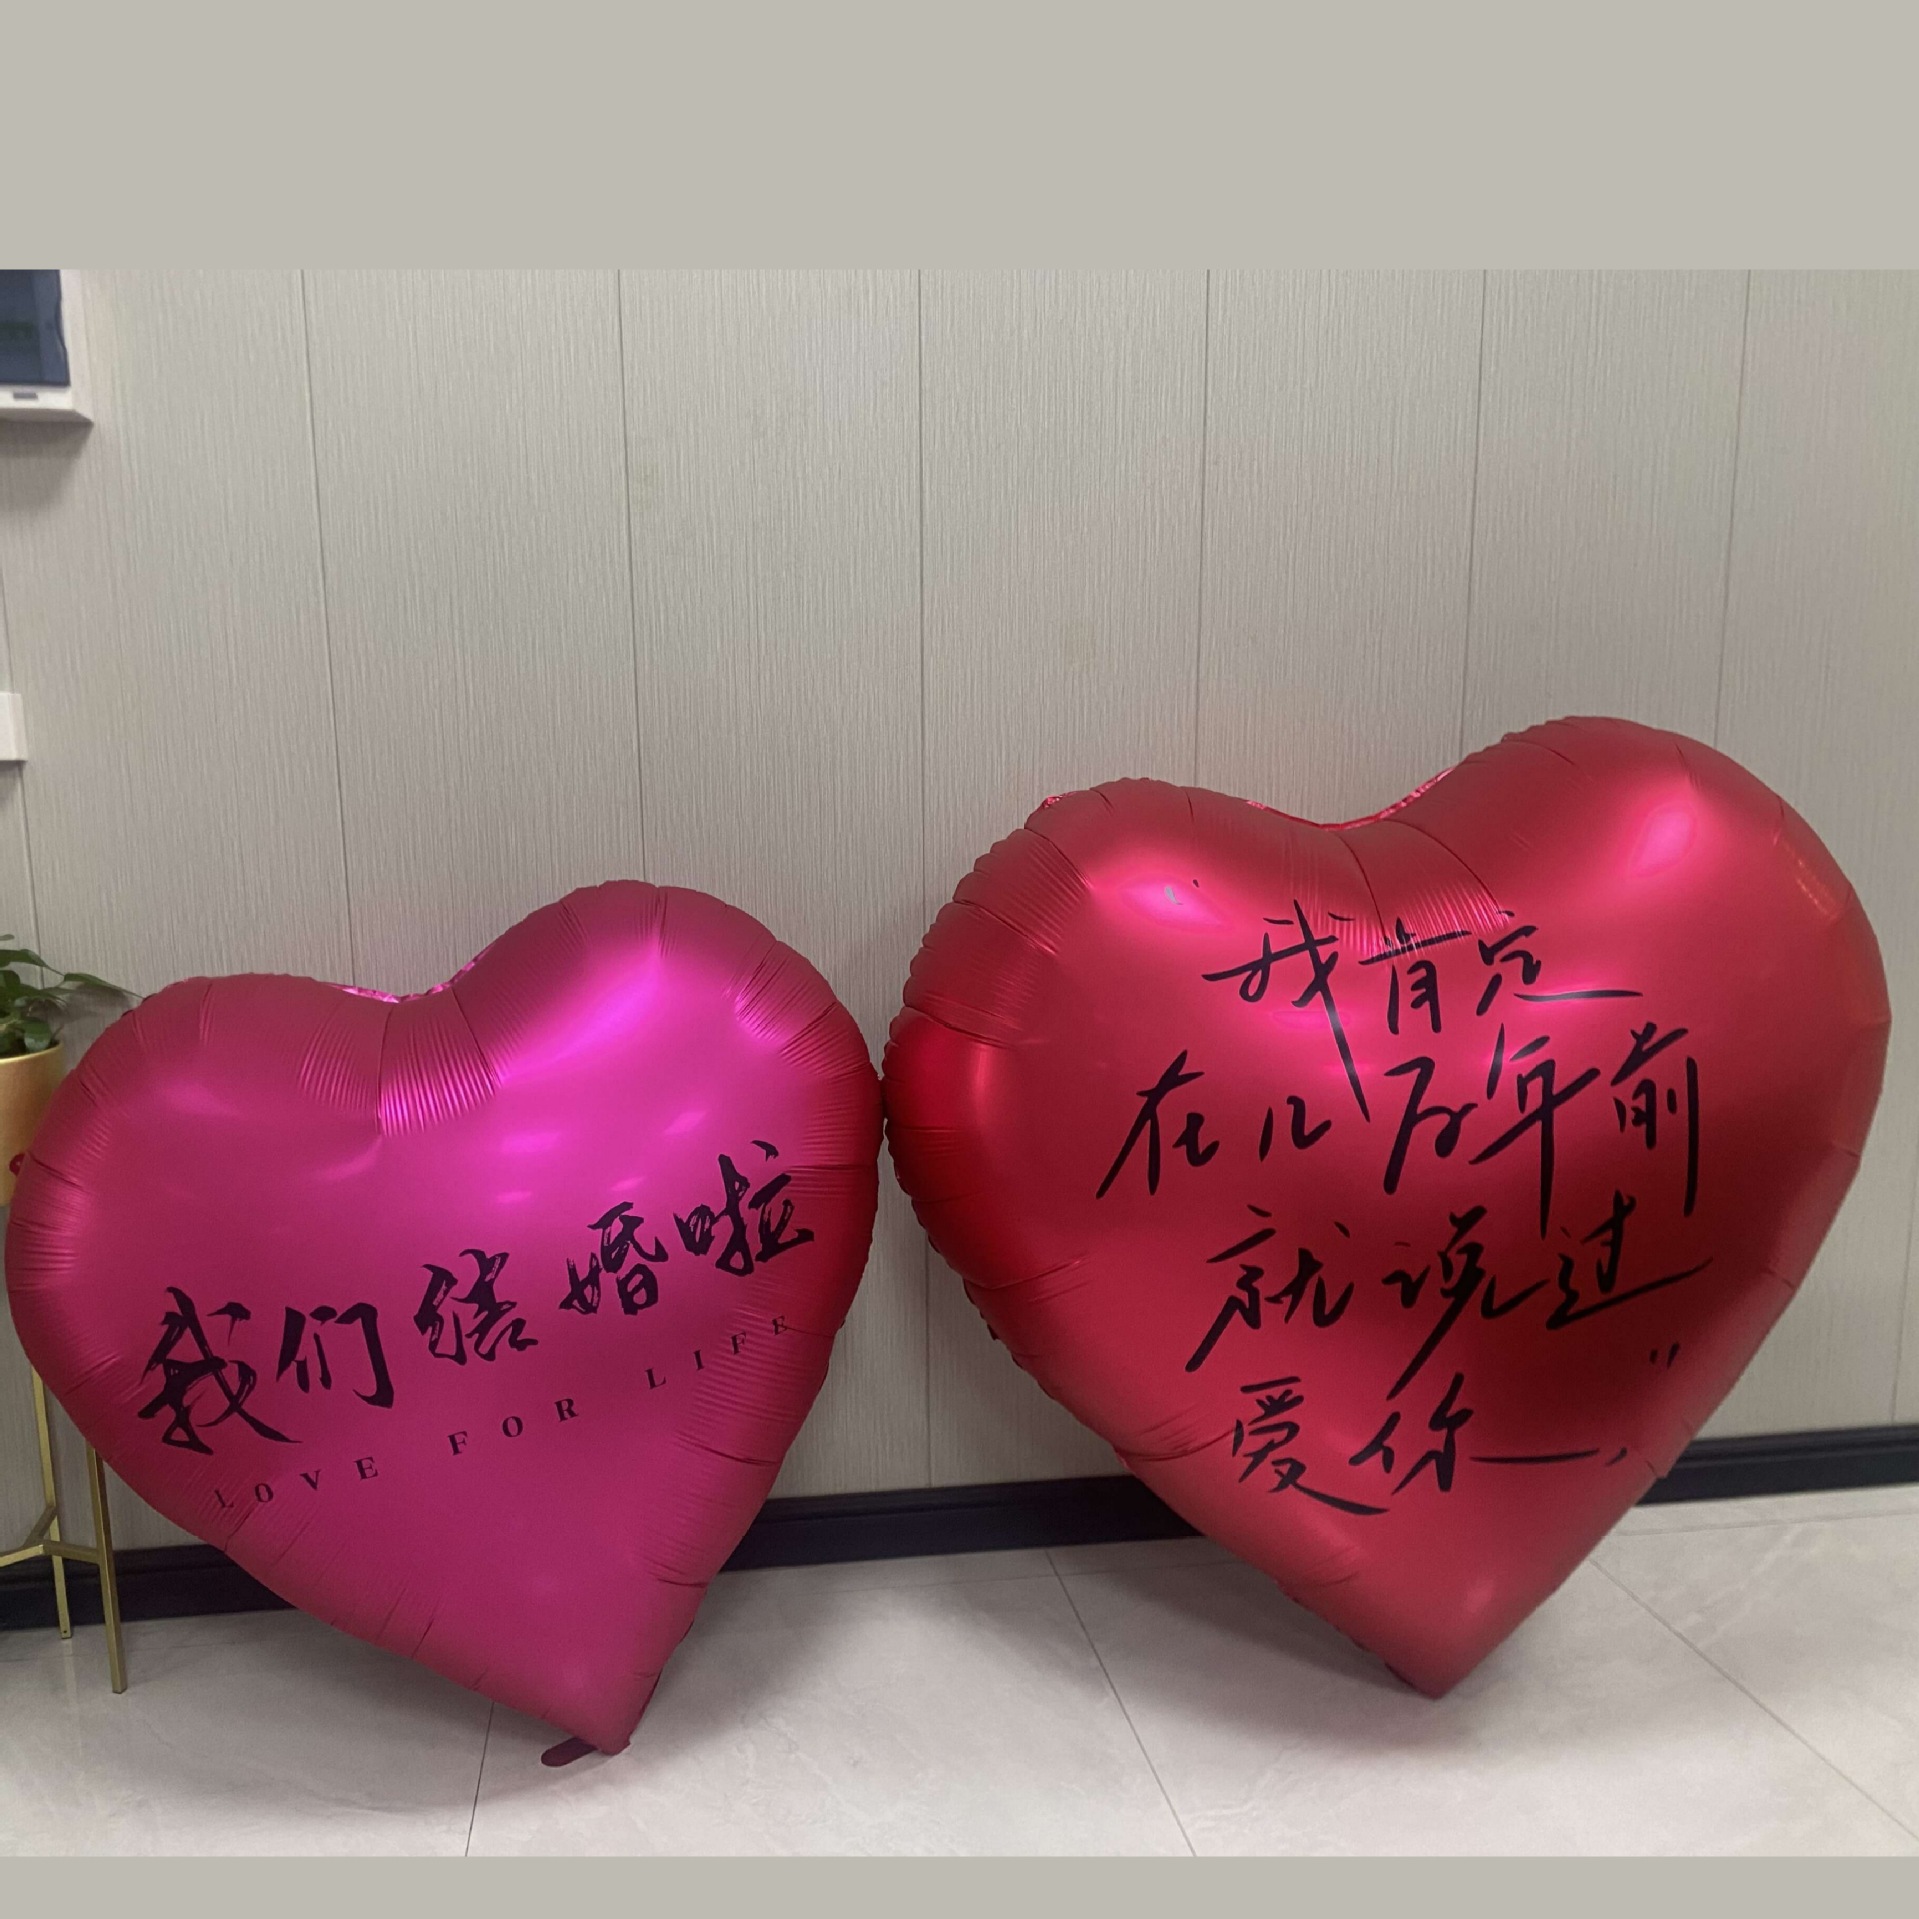 我们结婚啦
LOVE FOR LIFE
“我肯定
在几百年前
就说过
爱你”，